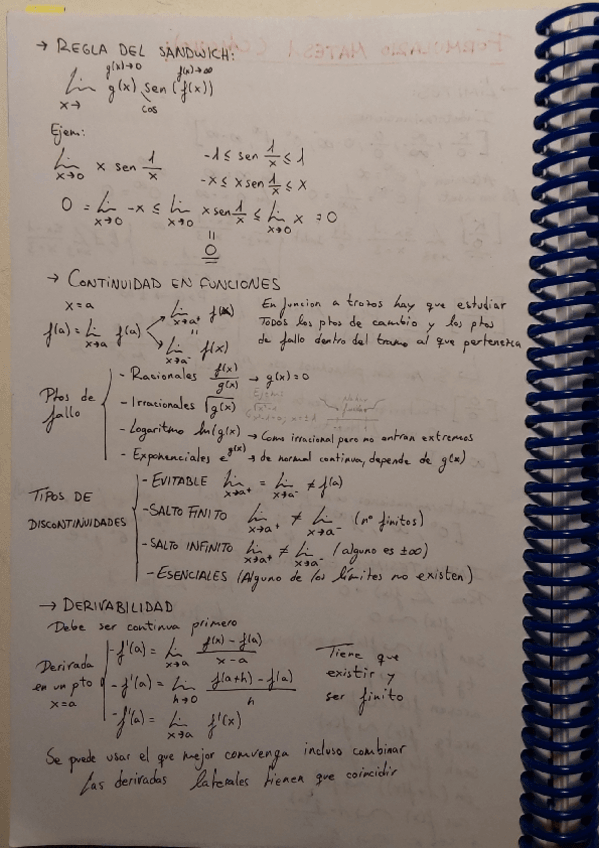 → REGLA DEL SANDWICH:
g(x)→0 f(x)→∞
Lim x→ g(x) sen (f(x))
cos
Ejem:
Lim x→0 x sen 1/x -1 ≤ sen 1/x ≤ 1
-x ≤ x sen 1/x ≤ x
0 = Lim x→0 -x ≤ Lim x→0 x sen 1/x ≤ Lim x→0 x = 0
=
0
→ CONTINUIDAD EN FUNCIONES
x=a
f(a) = Lim x→a f(a)
Lim x→a⁺ f(x)
=
Lim x→a⁻ f(x)
En funcion a trozos hay que estudiar
TODOS los ptos de cambio y los ptos
de fallo dentro del tramo al que pertenezca
Ptos de fallo
- Racionales f(x)/g(x) → g(x)=0
- Irracionales √g(x)
- Logaritmo ln(g(x) → Como irracional pero no entran extremos
- Exponenciales e^g(x) → de normal continua, depende de g(x)
TIPOS DE DISCONTINUIDADES
- EVITABLE Lim x→a⁺ = Lim x→a⁻ ≠ f(a)
- SALTO FINITO Lim x→a⁺ ≠ Lim x→a⁻ (nº finitos)
- SALTO INFINITO Lim x→a⁺ ≠ Lim x→a⁻ (alguno es ±∞)
- ESENCIALES (Alguno de los límites no existen)
→ DERIVABILIDAD
Debe ser continua primero
Derivada en un pto x=a
- f'(a) = Lim x→a f(x) - f(a) / x - a
- f'(a) = Lim h→0 f(a+h) - f(a) / h
- f'(a) = Lim x→a f'(x)
Tiene que
existir y
ser finito
Se puede usar el que mejor convenga incluso combinar
Las derivadas laterales tienen que coincidir